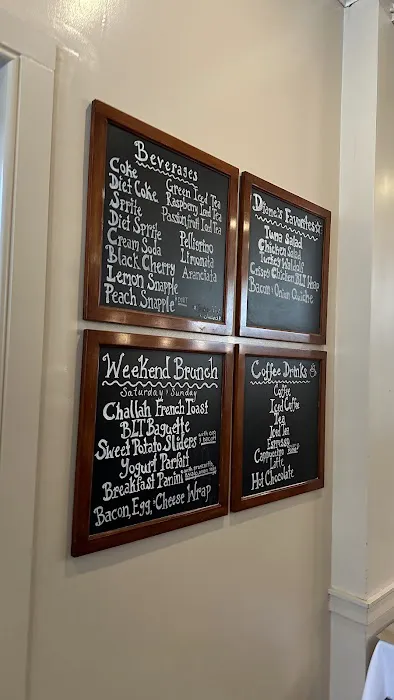 Beverages
Coke
Diet Coke
Sprite
Diet Sprite
Cream Soda
Black Cherry
Lemon Snapple
Peach Snapple
Green Iced Tea
Raspberry Iced Tea
Passionfruit Iced Tea
Pellegrino
Limonata
Aranciata
Diane's Favorites
Tuna Salad
Chicken Salad
Turkey
Crispy Chicken BLT Wrap
Bacon & Onion Quiche
Weekend Brunch
Saturday & Sunday
Challah French Toast
BLT Baguette
Sweet Potato Sliders
Yogurt Parfait
Breakfast Panini
Bacon, Egg, & Cheese Wrap
Coffee Drinks
Coffee
Iced Coffee
Tea
Iced Tea
Espresso
Cappuccino
Latte
Hot Chocolate